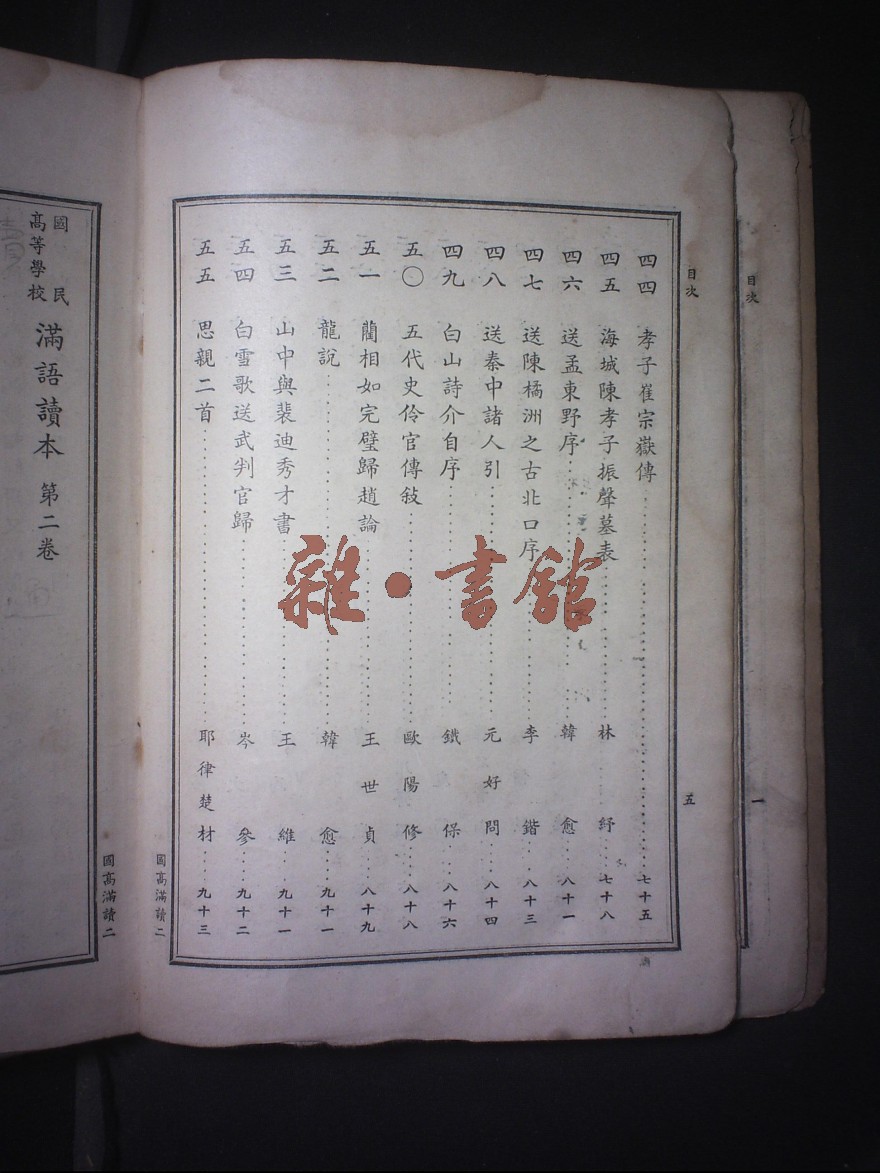 目次
一
目次
五
四四 孝子崔宗嶽傳 七十五
四五 海城陳孝子振聲墓表 林紓 七十八
四六 送孟東野序 韓愈 八十一
四七 送陳橘洲之古北口序 李鍇 八十三
四八 送秦中諸人引 元好問 八十四
四九 白山詩介自序 鐵保 八十六
五〇 五代史伶官傳敍 歐陽修 八十八
五一 藺相如完璧歸趙論 王世貞 八十九
五二 龍說 韓愈 九十一
五三 山中與裴迪秀才書 王維 九十一
五四 白雪歌送武判官歸 岑參 九十二
五五 思親二首 耶律楚材 九十三
國高滿讀二
國高滿讀二
國民高等學校 滿語讀本 第二卷
雜·書館